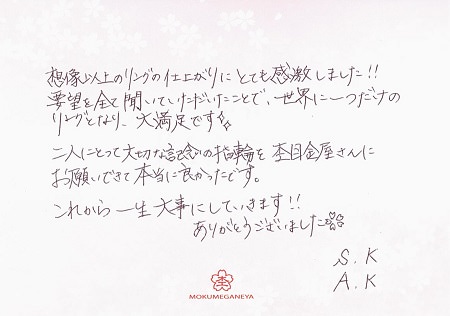 想像以上のリングの仕上がりにとても感激しました!!
要望を全て聞いていただいたことで、世界に一つだけの
リングとなり、大満足です
二人にとって大切な記念の指輪を、杢目金屋さんに
お願いできて本当に良かったです。
これから一生大事にしていきます!!
ありがとうございました
S.K
A.K
杢
MOKUMEGANEYA